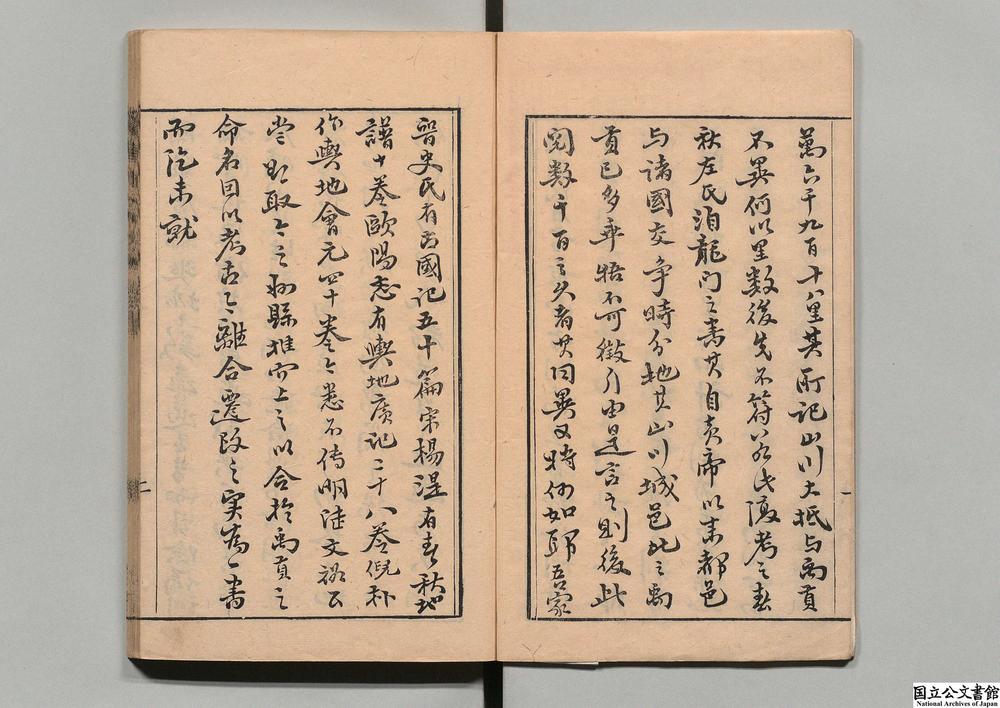 萬六千九百十八里其所記山川大抵与禹貢
不異何以里数後先不符若此復考之春
秋左氏洎龍門之書其自黄帝以来都邑
与諸國交争時分地其山川城邑比之禹
貢已多乖牾不可徵引由是言之則後此
閲数千百之久者其同異又特何如耶吾家
晉史氏有古國記五十篇宋楊湜有春秋地
譜十卷欧陽忞有輿地廣記三十八卷倪朴
作輿地會元四十卷今悉不传明陸文裕公
嘗
取今之州縣推而上之以合於禹貢之
命名曰以考古今離合遷改之実為一書
而迄未就
一
二
国立公文書館
National Archives of Japan